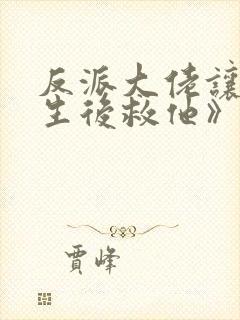 反派大佬讓
生後救他》
賈峰